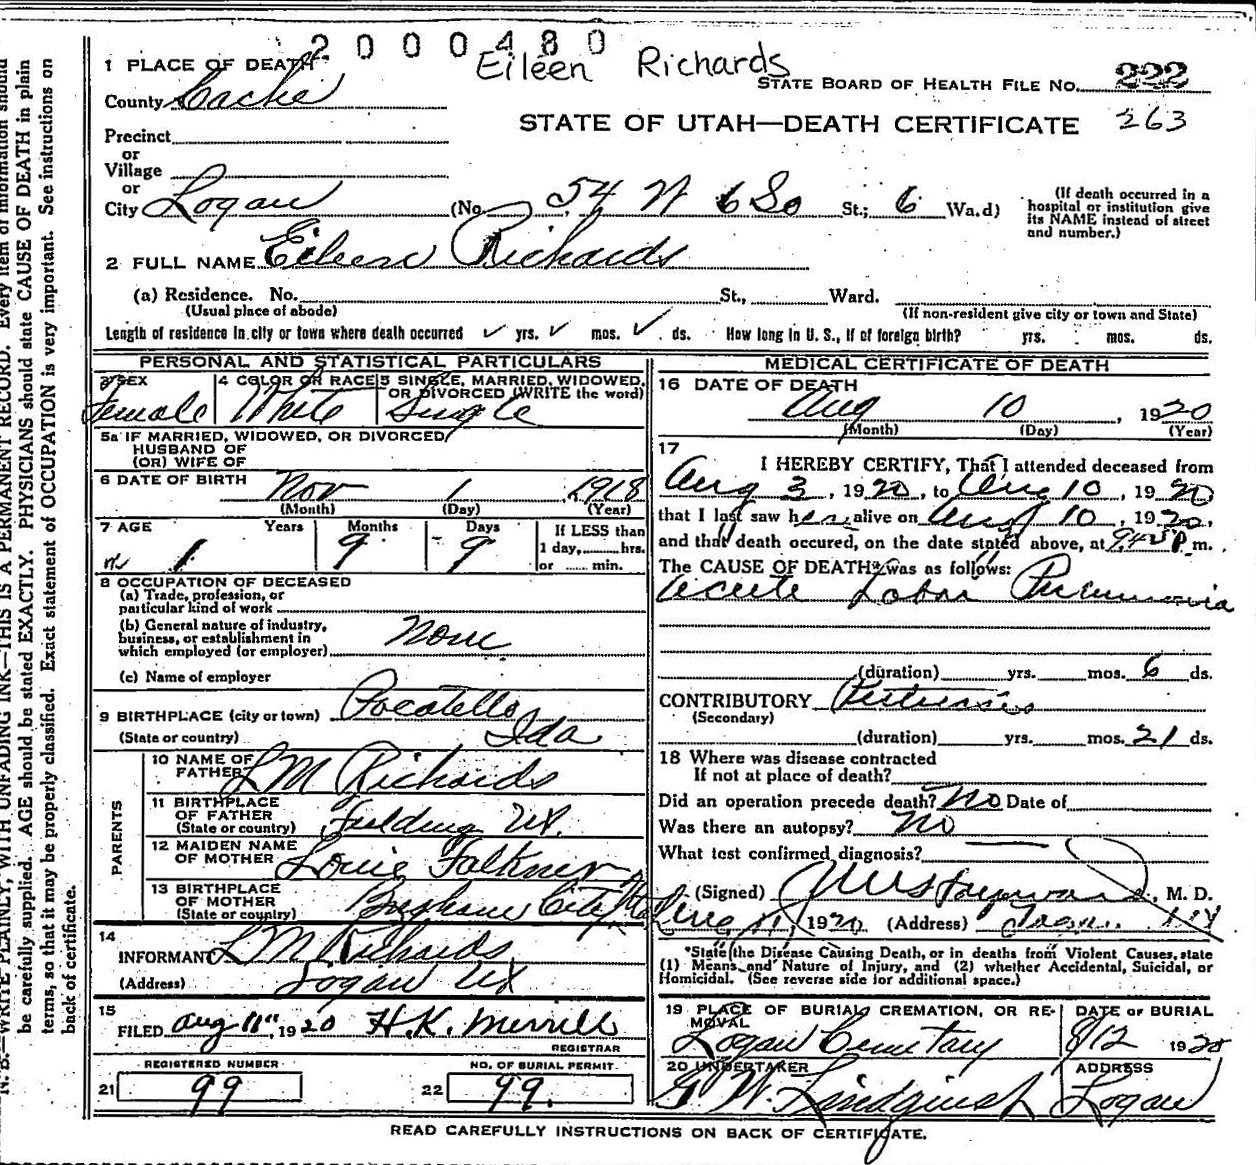 2000480
Eileen Richards
1 PLACE OF DEATH
STATE BOARD OF HEALTH FILE NO. 222
County Cache
STATE OF UTAH—DEATH CERTIFICATE 263
Precinct
or
Village
or
City Logan (No. 54 W 6 So St.; 6 Wa.d)
(If death occurred in a
hospital or institution give
its NAME instead of street
and number.)
2 FULL NAME Eileen Richards
(a) Residence. No. St., Ward.
(Usual place of abode) (If non-resident give city or town and State)
Length of residence in city or town where death occurred ✓ yrs. ✓ mos. ✓ ds. How long in U. S., if of foreign birth? yrs. mos. ds.
PERSONAL AND STATISTICAL PARTICULARS
3 SEX 4 COLOR OR RACE 5 SINGLE, MARRIED, WIDOWED,
OR DIVORCED (WRITE the word)
Female White Single
5a IF MARRIED, WIDOWED, OR DIVORCED
HUSBAND OF
(OR) WIFE OF
6 DATE OF BIRTH Nov 1 1918
(Month) (Day) (Year)
7 AGE Years Months Days If LESS than
1 9 9 1 day, hrs.
or min.
8 OCCUPATION OF DECEASED
(a) Trade, profession, or
particular kind of work
(b) General nature of industry,
business, or establishment in
which employed (or employer) None
(c) Name of employer
9 BIRTHPLACE (city or town) Pocatello
(State or country) Ida
PARENTS
10 NAME OF
FATHER L M Richards
11 BIRTHPLACE
OF FATHER
(State or country) Fielding Ut.
12 MAIDEN NAME
OF MOTHER Louie Falkner
13 BIRTHPLACE
OF MOTHER
(State or country) Brigham City
14
INFORMANT L M Richards
(Address) Logan Ut
15
FILED Aug 11" 1920 H.K. Merrill
REGISTRAR
REGISTERED NUMBER NO. OF BURIAL PERMIT
21 99 22 99.
MEDICAL CERTIFICATE OF DEATH
16 DATE OF DEATH
Aug 10, 1920
(Month) (Day) (Year)
17
I HEREBY CERTIFY, That I attended deceased from
Aug 3, 1920, to Aug 10, 1920
that I last saw her alive on Aug 10, 1920,
and that death occured, on the date stated above, at m.
The CAUSE OF DEATH* was as follows:
Acute Lobar Pneumonia
(duration) yrs. mos. 6 ds.
CONTRIBUTORY Pertussis
(Secondary)
(duration) yrs. mos. 21 ds.
18 Where was disease contracted
If not at place of death?
Did an operation precede death? No Date of
Was there an autopsy? No
What test confirmed diagnosis?
(Signed) Hayward, M. D.
Aug 11, 1920 (Address) Logan Ut
*State the Disease Causing Death, or in deaths from Violent Causes, state
(1) Means and Nature of Injury, and (2) whether Accidental, Suicidal, or
Homicidal. (See reverse side for additional space.)
19 PLACE OF BURIAL, CREMATION, OR RE- DATE OF BURIAL
MOVAL
Logan Cemetary 8/12 1920
20 UNDERTAKER ADDRESS
G W. Lindquist Logan
READ CAREFULLY INSTRUCTIONS ON BACK OF CERTIFICATE.
N. B.—WRITE PLAINLY, WITH UNFADING INK—THIS IS A PERMANENT RECORD. Every item of information should
be carefully supplied. AGE should be stated EXACTLY. PHYSICIANS should state CAUSE OF DEATH in plain
terms, so that it may be properly classified. Exact statement of OCCUPATION is very important. See instructions on
back of certificate.